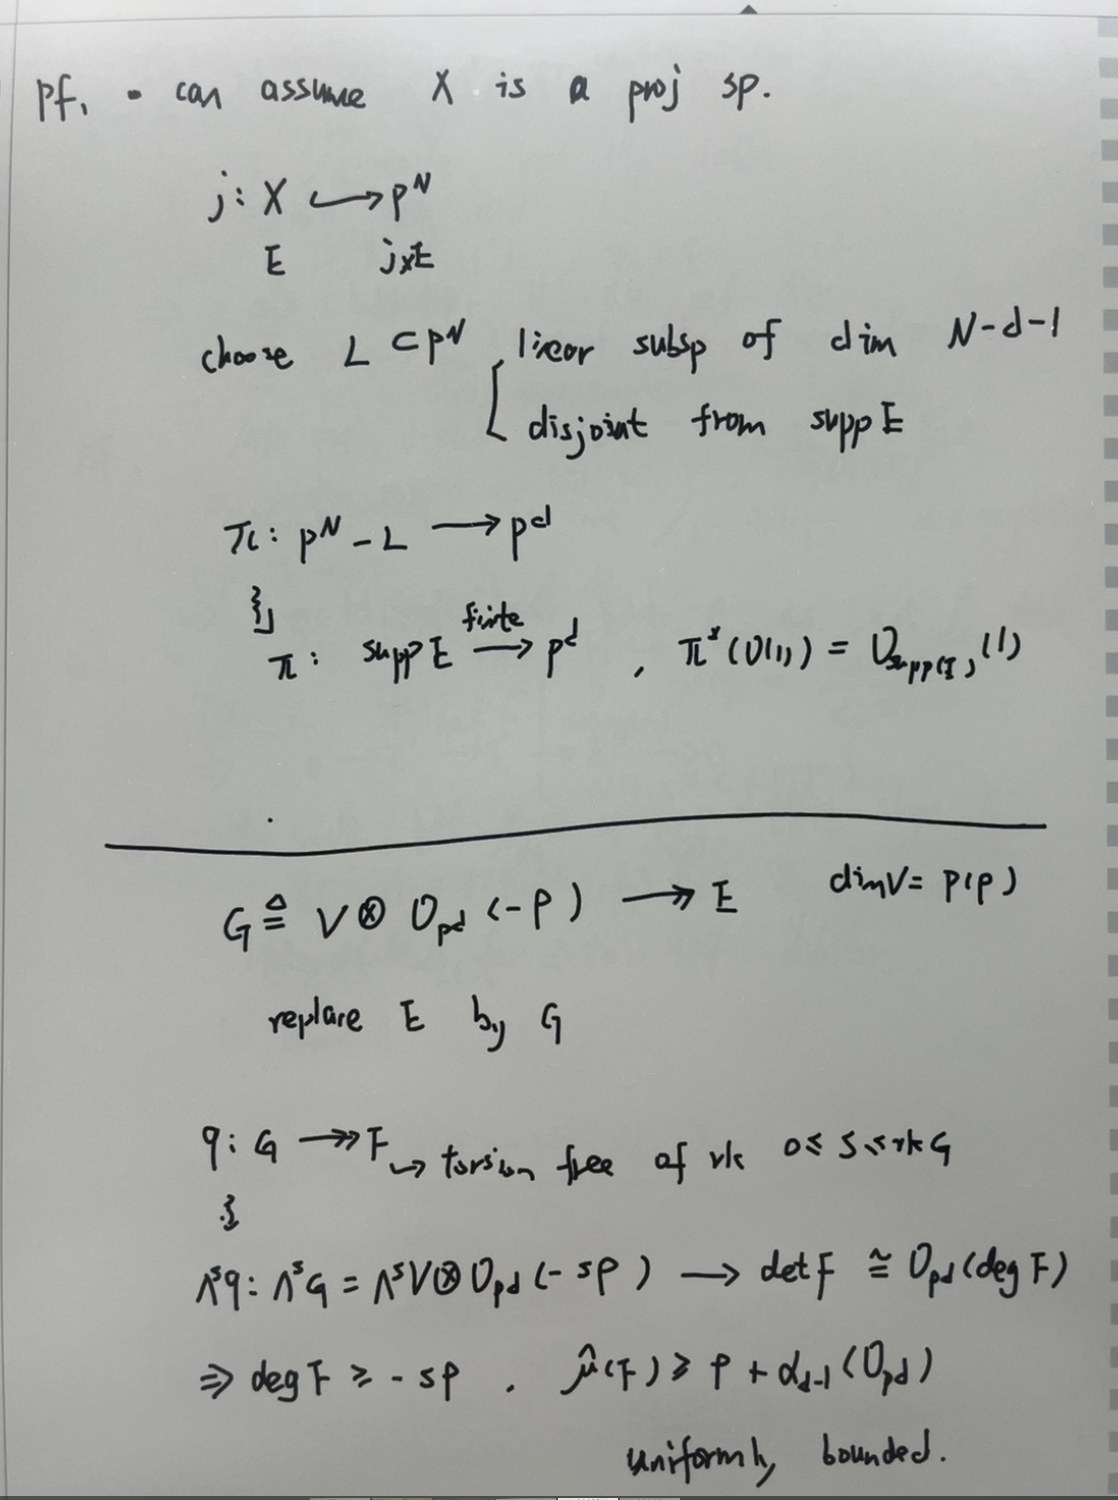 pf. • can assume X is a proj sp.
j: X ↪ P^N
E j_*E
choose L ⊂ P^N linear subsp of dim N-d-1
disjoint from supp E
π: P^N - L → P^d
π: supp E →^{finite} P^d , π^*(O(1)) = O_{supp(E)}(1)
G ≜ V ⊗ O_{P^d}(-p) ↠ E dim V = P(p)
replace E by G
q: G ↠ F ↪ torsion free of rk 0 ≤ s ≤ rk G
Λ^s q: Λ^s G = Λ^s V ⊗ O_{P^d}(-sp) → det F ≅ O_{P^d}(deg F)
⇒ deg F ≥ -sp . μ̂(F) ≥ p + α_{d-1}(O_{P^d})
uniformly bounded.